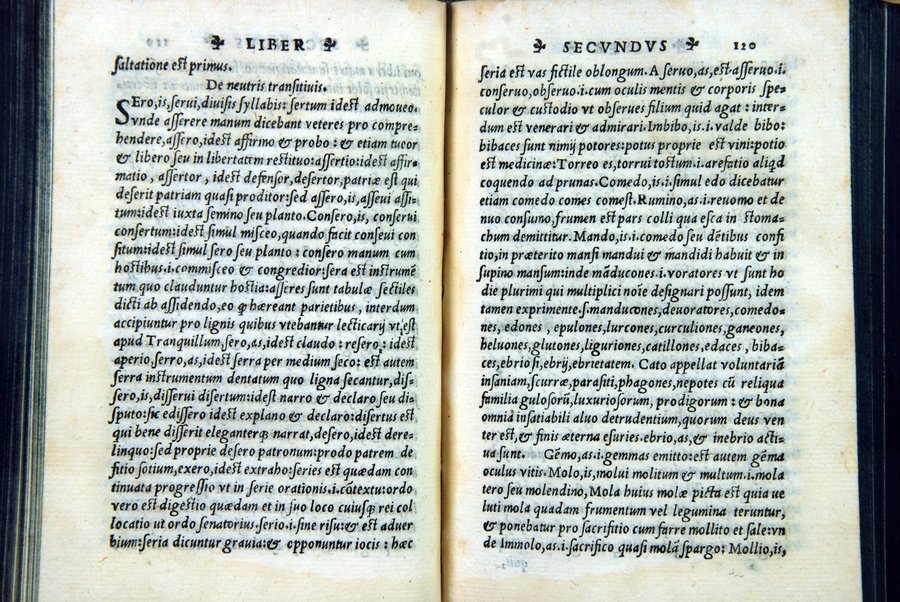 LIBER
saltatione est primus.
De neutris transitiuis.
SEro,is,serui,diuisis syllabis: sertum idest admoueo.
Vnde asserere manum dicebant veteres pro compre-
hendere,assero,idest affirmo & probo: & etiam tueor
& libero seu in libertatem restituo:assertio:idest affir-
matio, assertor, idest defensor,desertor,patriæ est qui
deserit patriam quasi proditor:sed assero,is,asseui assi-
tum:idest iuxta semino seu planto.Consero,is, conserui
consertum:idest simul misceo,quando facit conseui con
situm:idest simul sero seu planto: consero manum cum
hostibus.i.commisceo & congredior:sera est instrumē
tum quo clauduntur hostia:asseres sunt tabulæ sectiles
dicti ab assidendo,eo ꝙ hæreant parietibus, interdum
accipiuntur pro lignis quibus vtebantur lecticarij vt est
apud Tranquillum,sero,as,idest claudo: resero: idest
aperio,serro,as,idest serra per medium seco: est autem
serra instrumentum dentatum quo ligna secantur,dis-
sero,is,disserui disertum:idest narro & declaro seu di-
sputo:sic edissero idest explano & declaro:disertus est
qui bene disserit eleganterqꝫ narrat,desero,idest dere-
linquo:sed proprie desero patronum:prodo patrem de
sitio sotium,exero,idest extraho:series est quædam con
tinuata progressio vt in serie orationis.i.cūtextu:ordo
vero est digestio quædam et in suo loco cuiusqꝫ rei col
locatio ut ordo senatorius.serio.i.sine risu:& est aduer
bium:seria dicuntur grauia:& opponuntur iocis: hæc
SECVNDVS 120
seria est vas fictile oblongum. A seruo,as,est asseruo.i.
conseruo,obseruo.i.cum oculis mentis & corporis spe-
culor & custodio vt obserues filium quid agat: inter-
dum est venerari & admirari. Imbibo,is.i.valde bibo:
bibaces sunt nimij potores:potus proprie est vini:potio
est medicinæ: Torreo es,torrui tostum.i.arefatio aliqd
coquendo ad prunas. Comedo,is.i.simul edo dicebatur
etiam comedo comes comest. Rumino,as.i.reuomo et de
nuo consumo,frumen est pars colli qua esca in stoma-
chum demittitur. Mando,is.i.comedo seu dētibus confi
tio,in præterito mansi mandui & mandidi habuit & in
supino mansum:inde māducones.i.voratores vt sunt ho
die plurimi qui multiplici noīe designari possunt, idem
tamen experimente.s.manducones,deuoratores,comedo-
nes, edones, epulones,lurcones,curculiones, ganeones,
beluones,glutones,liguriones,catillones,edaces, biba-
ces,ebrio si,ebrij,ebrietatem. Cato appellat voluntariā
insaniam,scurræ,parasiti,phagones,nepotes cū reliqua
familia gulosorū,luxuriosorum, prodigorum: & bona
omnia insatiabili aluo detrudentium,quorum deus ven
ter est,& finis æterna esuries.ebrio,as,& inebrio acti-
ua sunt. Gēmo,as.i.gemmas emitto:est autem gēma
oculus vitis. Molo,is,molui molitum & multum.i.mola
tero seu molendino, Mola huius molæ picta est quia ue
luti mola quadam frumentum vel legumina teruntur,
& ponebatur pro sacrifitio cum farre mollito et sale:vn
de Immolo,as.i.sacrifico quasi molā spargo: Mollio,is,